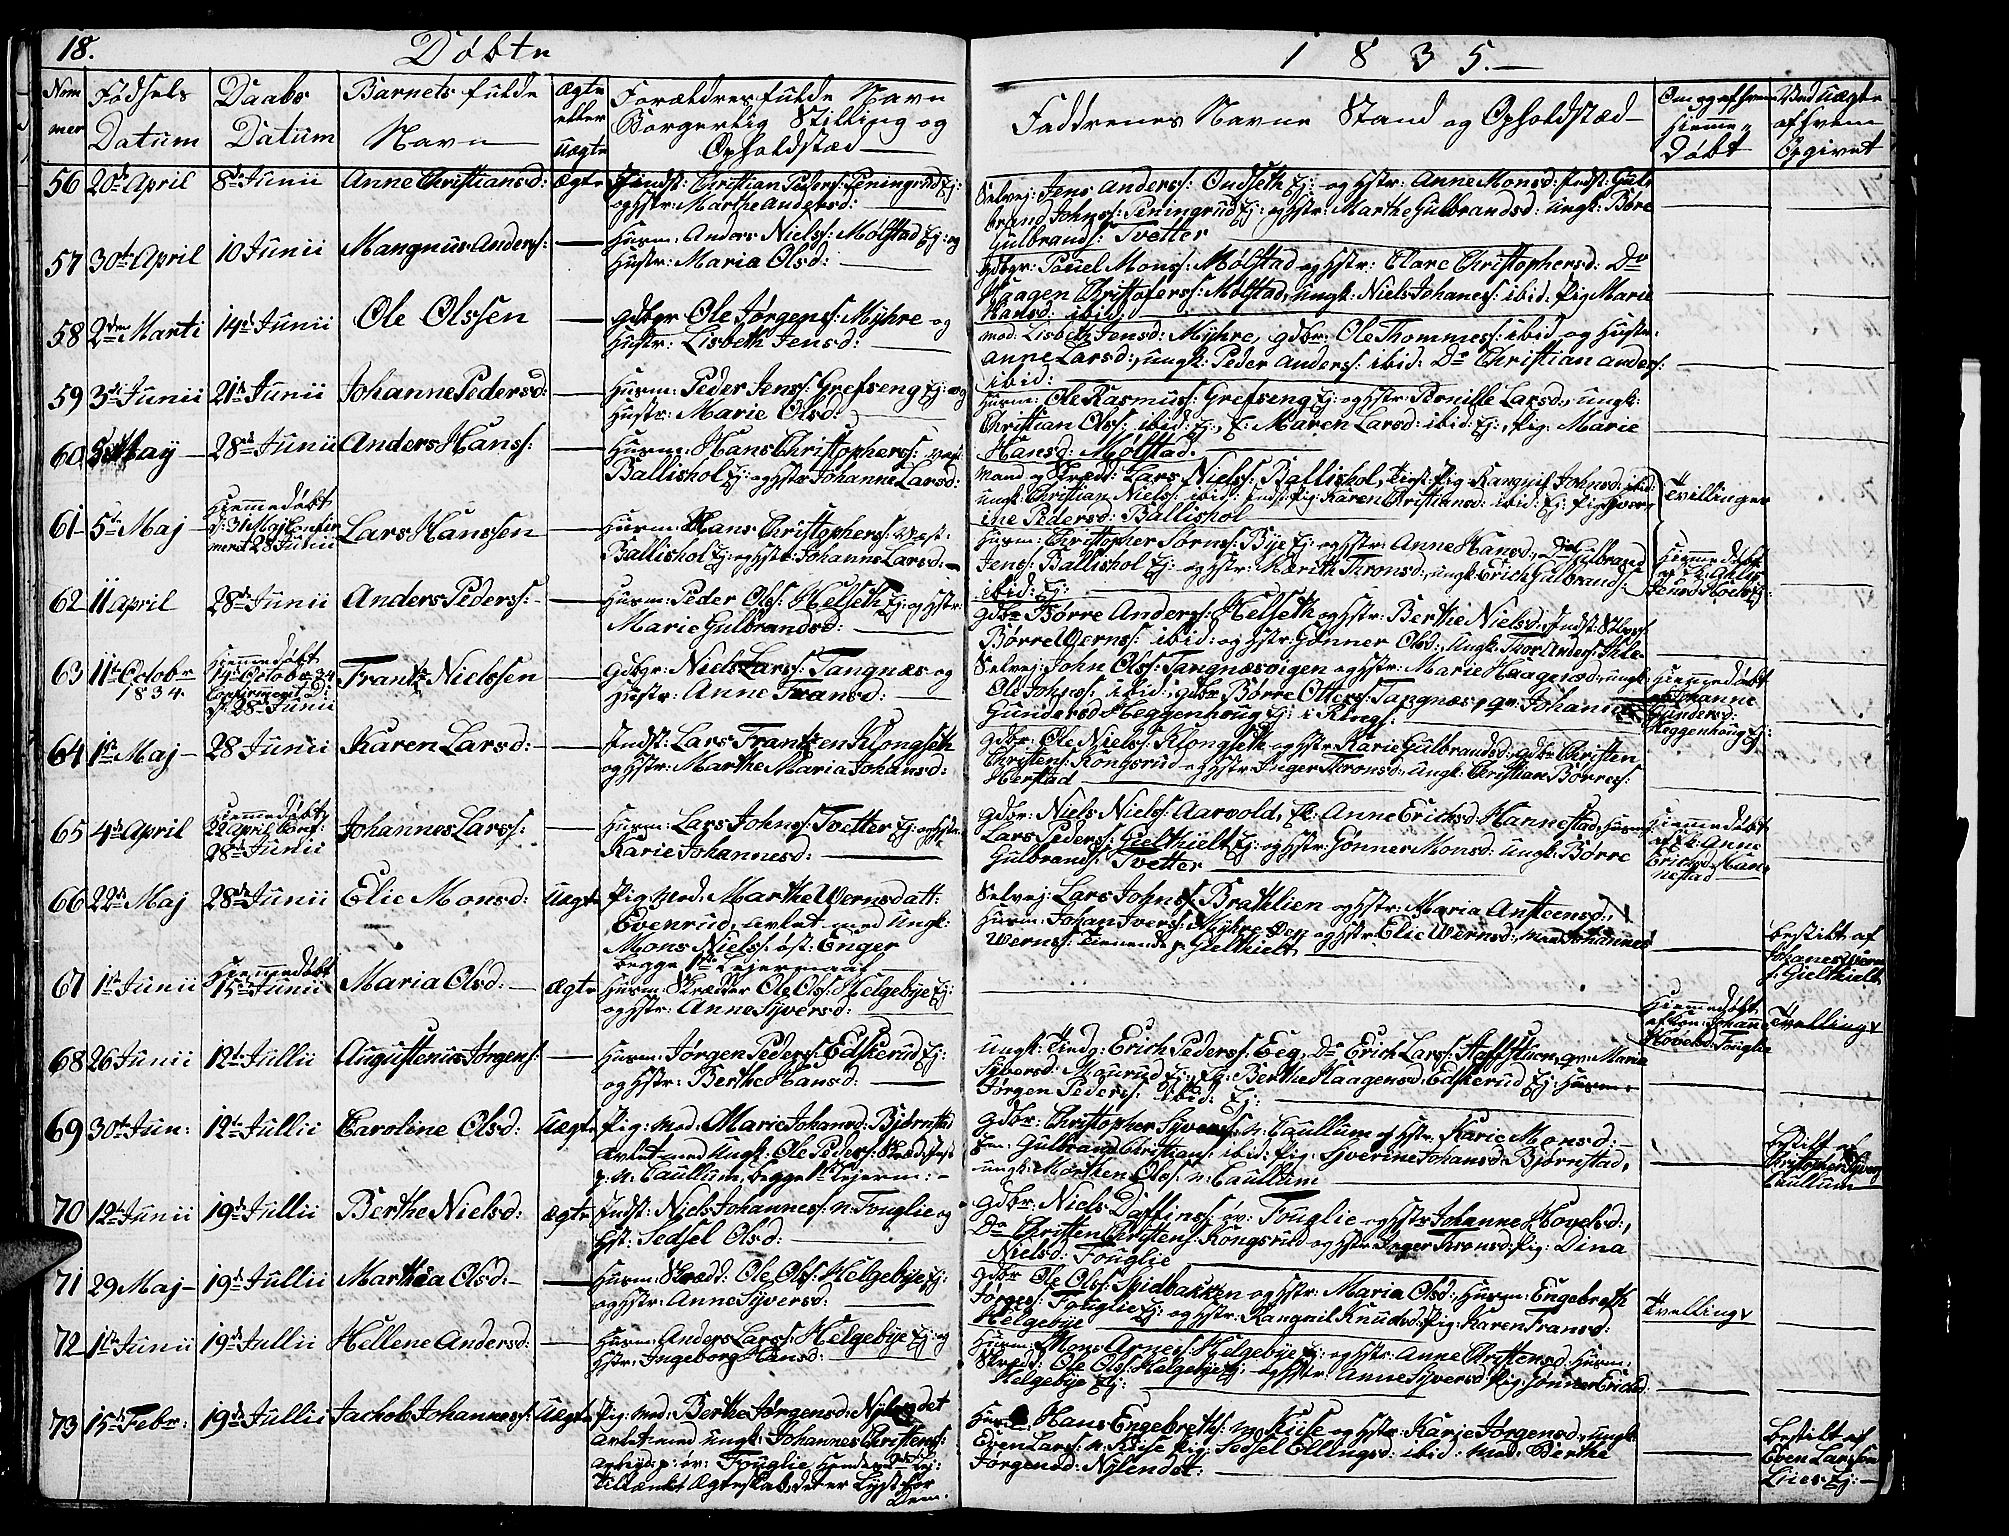 18. Døbte 1835.—
Nummer
Fødsels Datum
Daabs Datum
Barnets fulde Navn
Ægte eller Uægte
Forældres fulde Navn Borgerlig Stilling og Opholdstæd
Faddrenes Navne Stand og Opholdstæd
Om og af hvem Hiemmedøbt
Ved Uægte af hvem Opgivet
56 20de April 8de Junii Anne Christiansd: Ægte Indst: Christian Peders: Peningrud Ej:
og Hstr: Marthe Andersd:
Selvej: Jens Anders: Oudseth Ej: og Hstr: Anne Monsd: Indst: Gul-
brand Johns: Peningrud Ej: og Hstr: Marthe Gulbrandsd: ungk: Børe
Gulbrands: Tvetter
57 30te April 10 Junii Mangnus Anders: — Husm: Anders Niels: Mølstad Ej: og
Hustr: Maria Olsd:
Gdbgr: Pouel Mons: Mølstad og Hstr: Clare Christophersd: Do
Haagen Christofers: Mølstad, ungk: Niels Johanes: ibid: Pig Marie
Hansd: ibid:
58 2den Marti 14de Junii Ole Olssen — Gdbgr Ole Jørgens: Myhre og
Hustr: Lisbeth Jensd:
mod: Lisbeth Jensd: Myhre, gdbr: Ole Thommes: ibid og Hustr:
Anne Larsd:, ungk: Peder Anders: ibid: Do Christian Anders:
ibid:
59 3de Junii 21de Junii Johanne Pedersd: — Husm: Peder Jens: Grefseng Ej: og
Hustr: Marie Olsd:
Husm: Ole Rasmus: Grefseng Ej: og Hstr: Pernille Larsd:, ungk:
Christian Ols: ibid: Ej:, E: Maren Larsd: ibid: Ej:, Pig: Marie
Hansd: Mølstad.
60 May 28de Junii Anders Hans: — Husm: Hans Christophers:
Ballishol Ej: og Hstr: Johanne Larsd:
Lars Niels: Ballishol, Pig Rangnil Johnsd: ibid:
ungk: Christian Niels: ibid: Indst: Pig Karen Christiansd: ibid: Ej: Pig Syver-
ine Pedersd: Ballishol
Tvillinger
61 5te Maj Hiemmedøbt
d: 31 Maj Confir-
meret 28 Junii
Lars Hanssen — Husm: Hans Christophers:
Ballishol Ej: og Hstr: Johanne Larsd:
Husm: Christopher Sørns: Bye Ej: og Hstr: Anne Hansd:, Do Gulbrand
Jens: Ballishol Ej: og Hstr: Marith Thronsd:, ungk: Erich Gulbrands:
ibid: Ej:
Hiemmedøbt
62 11 April 28de Junii Anders Peders: — Husm: Peder Ols: Helseth Ej: og Hstr:
Marie Gulbrandsd:
Gdbr Børre Anders: Helseth og Hstr: Berthe Nielsd:, Indst:
Børre Werns: ibid: og Hstr: Gønner Olsd:, Ungk: Thor Anders:
63 11te Octobr 1834. Hiemmedøbt
14de Octobr 34
Confirmerit
d: 28de Junii
Frantz Nielssen — Gdbgr: Niels Lars: Tangnæs og
Hustr: Anne Fransd:
Selvej: John Ols: Tangnæsvigen og Hstr: Marie Haagensd:, ungk:
Ole Johns: ibid:, gdbr Børre Otters: Tagnæs, qv: Johanne
Gundersd Heggenhoug Ej: i Rings:
Hiemmedøbt
af Johanne
Gundersd:
Heggenhoug Ej:
64 1ste Maj 28 Junii Karen Larsd: — Indst: Lars Frantzen Klongseth
og Hstr: Marthe Maria Johansd:
Gdbr: Ole Niels: Klongseth og Hstr: Karie Gulbrandsd:, gdbr Christen
Christens: Kongsrud og Hstr: Inger Thronsd:, ungk: Christian Børres:
Herstad
65 4de April Hiemmedøbt
22 April Conf:
28de Junii
Johannes Lars: — Husm: Lars Johns: Tvetter Ej: og Hstr:
Karie Johannesd:
Gdbr: Niels Niels: Aarvold, E: Anne Erichsd Hannestad, Husm:
Lars Peders: Gielhielt Ej: og Hstr: Gønner Monsd: ungk: Børre
Gulbrands: Tvetter
Hiemmedøbt
af E: Anne
Erichsd: Han-
nestad
66 22de Maj 28de Junii Elie Monsd: Uægte Pig: mod: Marthe Wernsdatt:
Evenrud, avlet med Ungk:
Mons Niels: øst: Enger
begge 1ste Lejermaal
Selvej: Lars Johns: Brathlien og Hstr: Maria Ansteensd:,
Husm: Johan Ivers: Myhre Ej: og Hstr: Elie Wernsd:, Johannes
Werns: tienende p: Gielhielt
bestilt af
Johanes Werns
p: Gielhielt
67 1ste Junii Hiemmedøbt
15de Junii
Maria Olsd: Ægte Husm: Skrædder Ole Ols: Helgebye Ej:
og Hstr: Anne Syversd:
Hiemmedøbt
Fouglie
Tvelling
68 26 Junii 12te Jullii Augustenus Jørgens: — Husm: Jørgen Peders: Edskerud Ej:
og Hstr: Berthe Hansd:
Ungk: Erich Peders: Eeg, Do Erich Lars: Staffshus, qv: Maria
Syversd: Maurud Ej:, E: Berthe Haagensd: Edskerud Ej: Husm:
Jørgen Peders: ibid: Ej:
69 30te Jun: 12te Jullii Caroline Olsd: Uægte Pig: mod: Marie Johansd: Bjørnstad
avlet med Ungk: Ole Peders:
p: n: Caullum, begge 1ste Lejerm:
Gdbr: Christopher Syvers: n: Caullum og Hstr: Karie Monsd:
Gulbrand Christians: ibid: Pig: Syverine Johansd: Bjørnstad,
ungk: Morthen Ols: n: Caullum
bestilt af
Christopher Syvers
Caullum
70 12te Junii 19de Jullii Berthe Nielsd: Ægte Indst: Niels Johannes: n: Fouglie og
Hst: Sedsel Olsd:
Gdbr: Niels Daffins: øv: Fouglie og Hstr Johanne Hovelsd:,
Do Christen Christens: Kongsrud og Hstr: Inger Thronsd: Pig: Dina
Nielsd: Fouglie
71 29 Maj 19de Jullii Marthea Olsd: — Husm: Skræd: Ole Ols: Helgebye Ej:
og Hstr: Anne Syversd:
Gdbr Ole Ols: Spidbakken og Hstr: Maria Olsd:, Husm: Engebreth
Jørges: Fouglie Ej: og Hstr: Rangnil Knudsd: Pig: Karen Fransd:
Helgebye
Tvelling
72 1ste Junii 19de Jullii Hellene Andersd: — Husm: Anders Lars: Helgebye Ej: og
Hstr: Ingeborg Hansd:
Husm: Mons Arnes: Helgebye Ej: og Hstr: Anne Christensd: Husm:
Skræd: Ole Ols: Helgebye Ej: og Hstr: Anne Syversd: Pig: Gønner Ericsd
Helgebye Ej:
73 15de Febr: 19de Jullii Jachob Johannes: Uægte Pig: mod: Berthe Jørgensd: Nylendet
avlet med ungk: Johannes Christens:
p: øv: Fouglie,
tiltænkt Ægteskab, det er Lyst for
Dem.
Hans Engebreths: Kiise og Hstr: Karie Jørgensd:, ungk
Even Lars: n: Kiise Pig: Sedsel Ellingsd: ibid: mod: Berthe
Jørgensd: Nylendet:
bestilt af
Even Larssen
Ej: